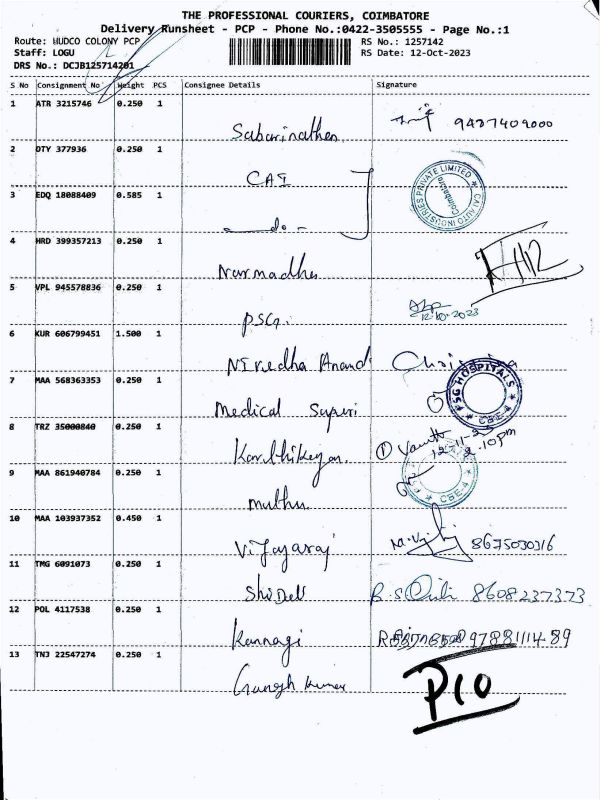 THE PROFESSIONAL COURIERS, COIMBATORE
Delivery Runsheet - PCP - Phone No.:0422-3505555 - Page No.:1
Route: HUDCO COLONY PCP RS No.: 1257142
Staff: LOGU RS Date: 12-Oct-2023
DRS No.: DCJB125714201
S No Consignment No Weight PCS Consignee Details Signature
1 ATR 3215746 0.250 1
Sabarinathan 9487409000
2 DTY 377936 0.250 1
CAI
CAI AUTO INDUSTRIES PRIVATE LIMITED
Coimbatore
3 EDQ 18088409 0.585 1
- do -
4 HRD 399357213 0.250 1
Narmadha
5 VPL 945578836 0.250 1
PSG. 12.10.2023
6 KUR 606799451 1.500 1
Nivedha Anand
7 MAA 568363353 0.250 1
PSG HOSPITALS
CBE-4
Medical Superi
8 TRZ 35000840 0.250 1
Karthikeyan. 2.10pm
9 MAA 861940784 0.250 1
CBE-4
muthu.
10 MAA 103937352 0.450 1
Vijayaraj 8675030316
11 TMG 6091073 0.250 1
8608237373
12 POL 4117538 0.250 1
Kannagi 9788111489
13 TNJ 22547274 0.250 1
Ganesh Kumar P10